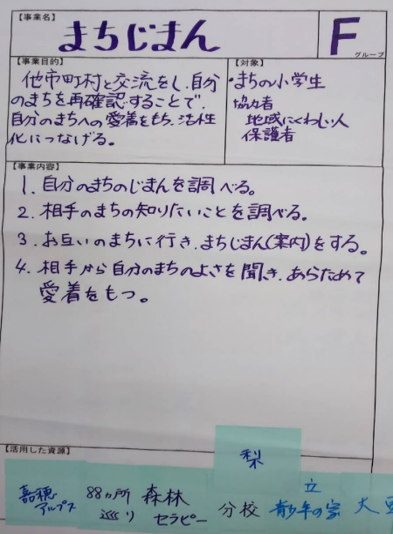 【事業名】
まちじまん
F
グループ
【事業目的】
他市町村と交流をし、自分
のまちを再確認することで、
自分のまちへの愛着をもち、活性
化につなげる。
【対象】
・まちの小学生
協力者
地域にくわしい人
保護者
【事業内容】
1. 自分のまちのじまんを調べる。
2. 相手のまちの知りたいことを調べる。
3. お互いのまちに行き、まちじまん(案内)をする。
4. 相手から自分のまちのよさを聞き、あらためて
愛着をもつ。
【活用した資源】
嘉穂
アルプス
88ヵ所
巡り
森林
セラピー
梨
分校
立
青少年の家
大豆